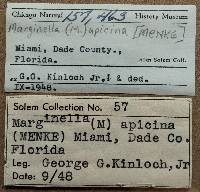 Chicago Natural History Museum
157,463
Marginella (M.) apicina [MENKE]
Miami, Dade County.,
Florida.
Alan Solem Coll.
G.G. Kinloch Jr.; & ded.
IX-1948.
Solem Collection No. 57
Marginella(M) apicina
(MENKE) Miami, Dade Co.
Florida
Leg. George G.Kinloch,Jr
Date: 9/48